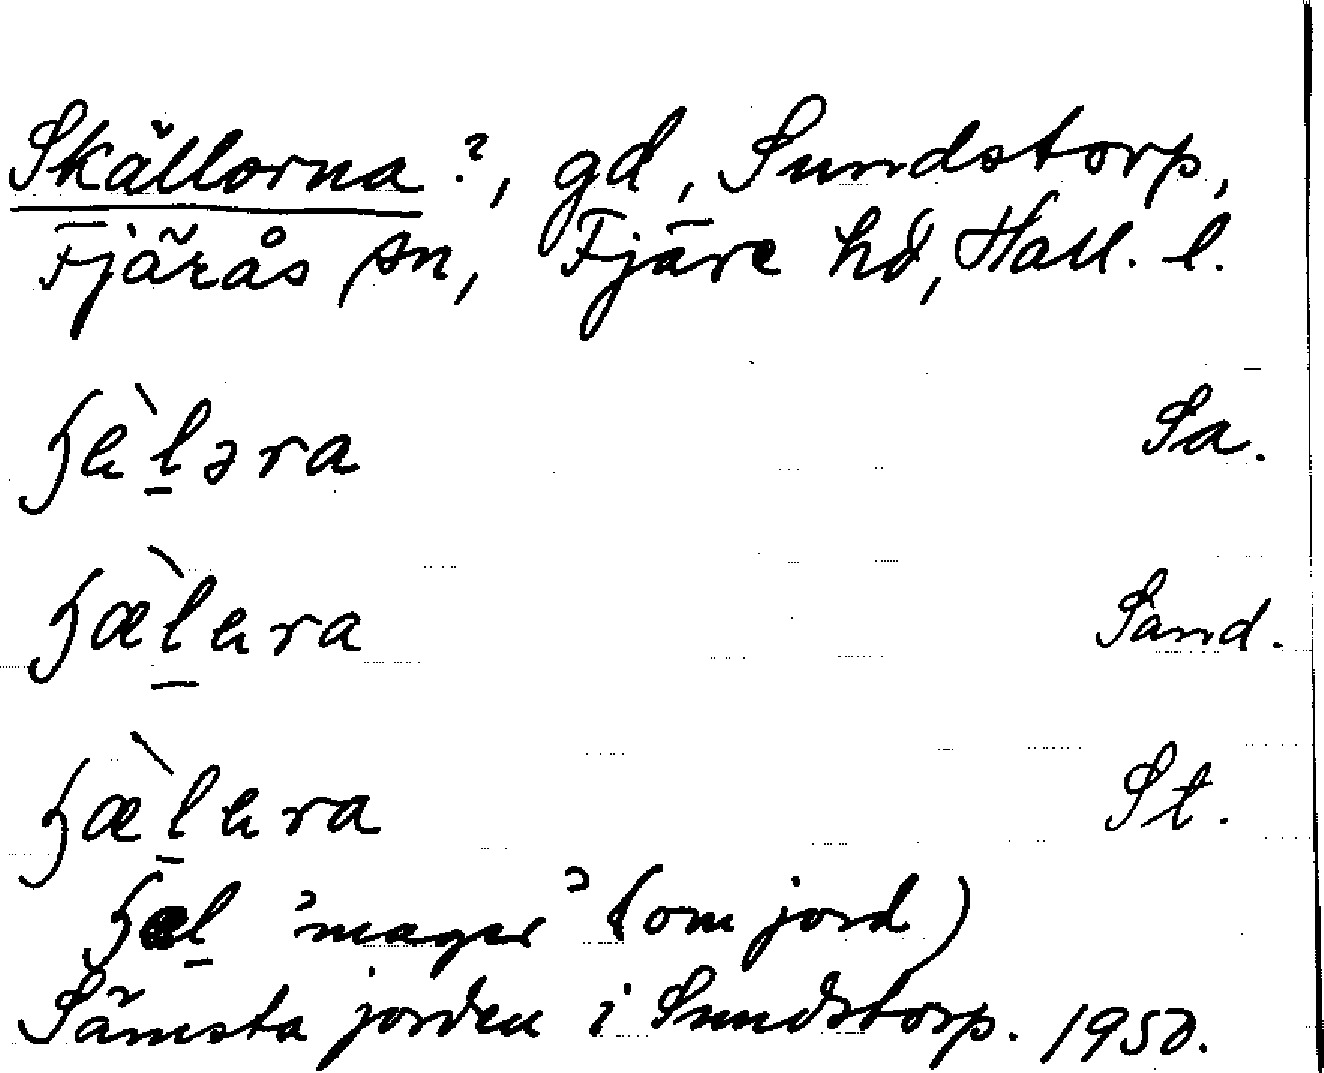 Skällorna?, gd, Sundstorp,
Fjärås sn, Fjäre hd, Hall. l.
ʃèl̠əra Sa.
ʃæ̀l̠era Sand.
ʃæ̀l̠era St.
ʃæl̠ 'mager' (om jord)
Sämsta jorden i Sundstorp. 1950.